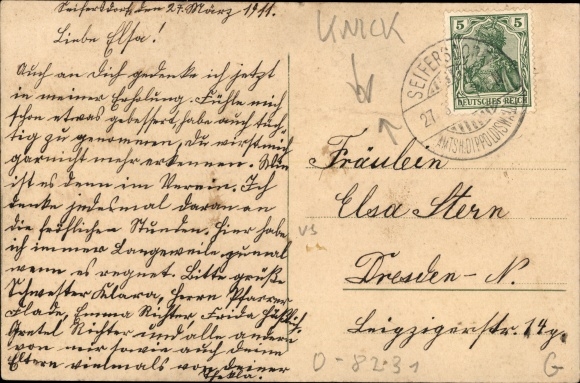 Seifersdorf, den 27. März 1911.
Liebe Elsa!
Auch an Dich gedenke ich jetzt
in meiner Erholung. Fühle mich
schon etwas gebessert, habe auch tüch-
tig zu genommen, Du wirst mich
garnicht mehr erkennen. Wie
ist es denn im Verein. Ich
denke jedesmal daran an
die fröhlichen Stunden. Hier habe
ich immer Langeweile zumal
wenn es regnet. Bitte grüße
Schwester Klara, Herrn Pfarrer
Flade, Emma Richter Frida
Gretel Richter und alle andern
von mir sowie auch deine
Eltern vielmals von deiner
Thekla.
KNICK
5 5
DEUTSCHES REICH
SEIFERSDORF
27
AMTSH. DIPPOLDISWALDE
Fräulein
Elsa Stern
Dresden-N.
Leipzigerstr. 14
VS
0-8231
G